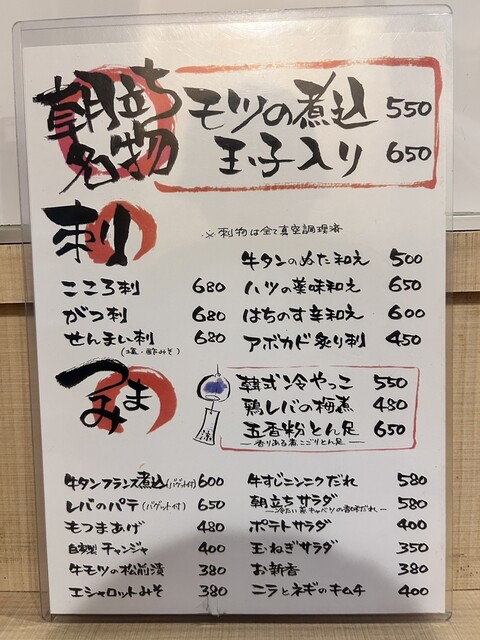 朝立ち名物
モツの煮込 550
玉子入り 650
刺
※刺物は全て真空調理済
こころ刺 680
がつ刺 680
せんまい刺 680
(塩・酢みそ)
牛タンのぬた和え 500
ハツの薬味和え 650
はちのす辛和え 600
アボカド炙り刺 450
つまみ
涼
韓式冷やっこ 550
鶏レバの梅煮 480
五香粉とん足 650
香りある煮こごりとん足
牛タンフランス煮込(バゲット付) 600
レバのパテ(バゲット付) 650
もつまあげ 480
自家製チャンジャ 400
牛モツの松前漬 380
エシャロットみそ 380
牛すじニンニクだれ 580
朝立ちサラダ 580
冷たい蒸キャベツの香味だれ
ポテトサラダ 400
玉ねぎサラダ 350
お新香 380
ニラとネギのキムチ 400